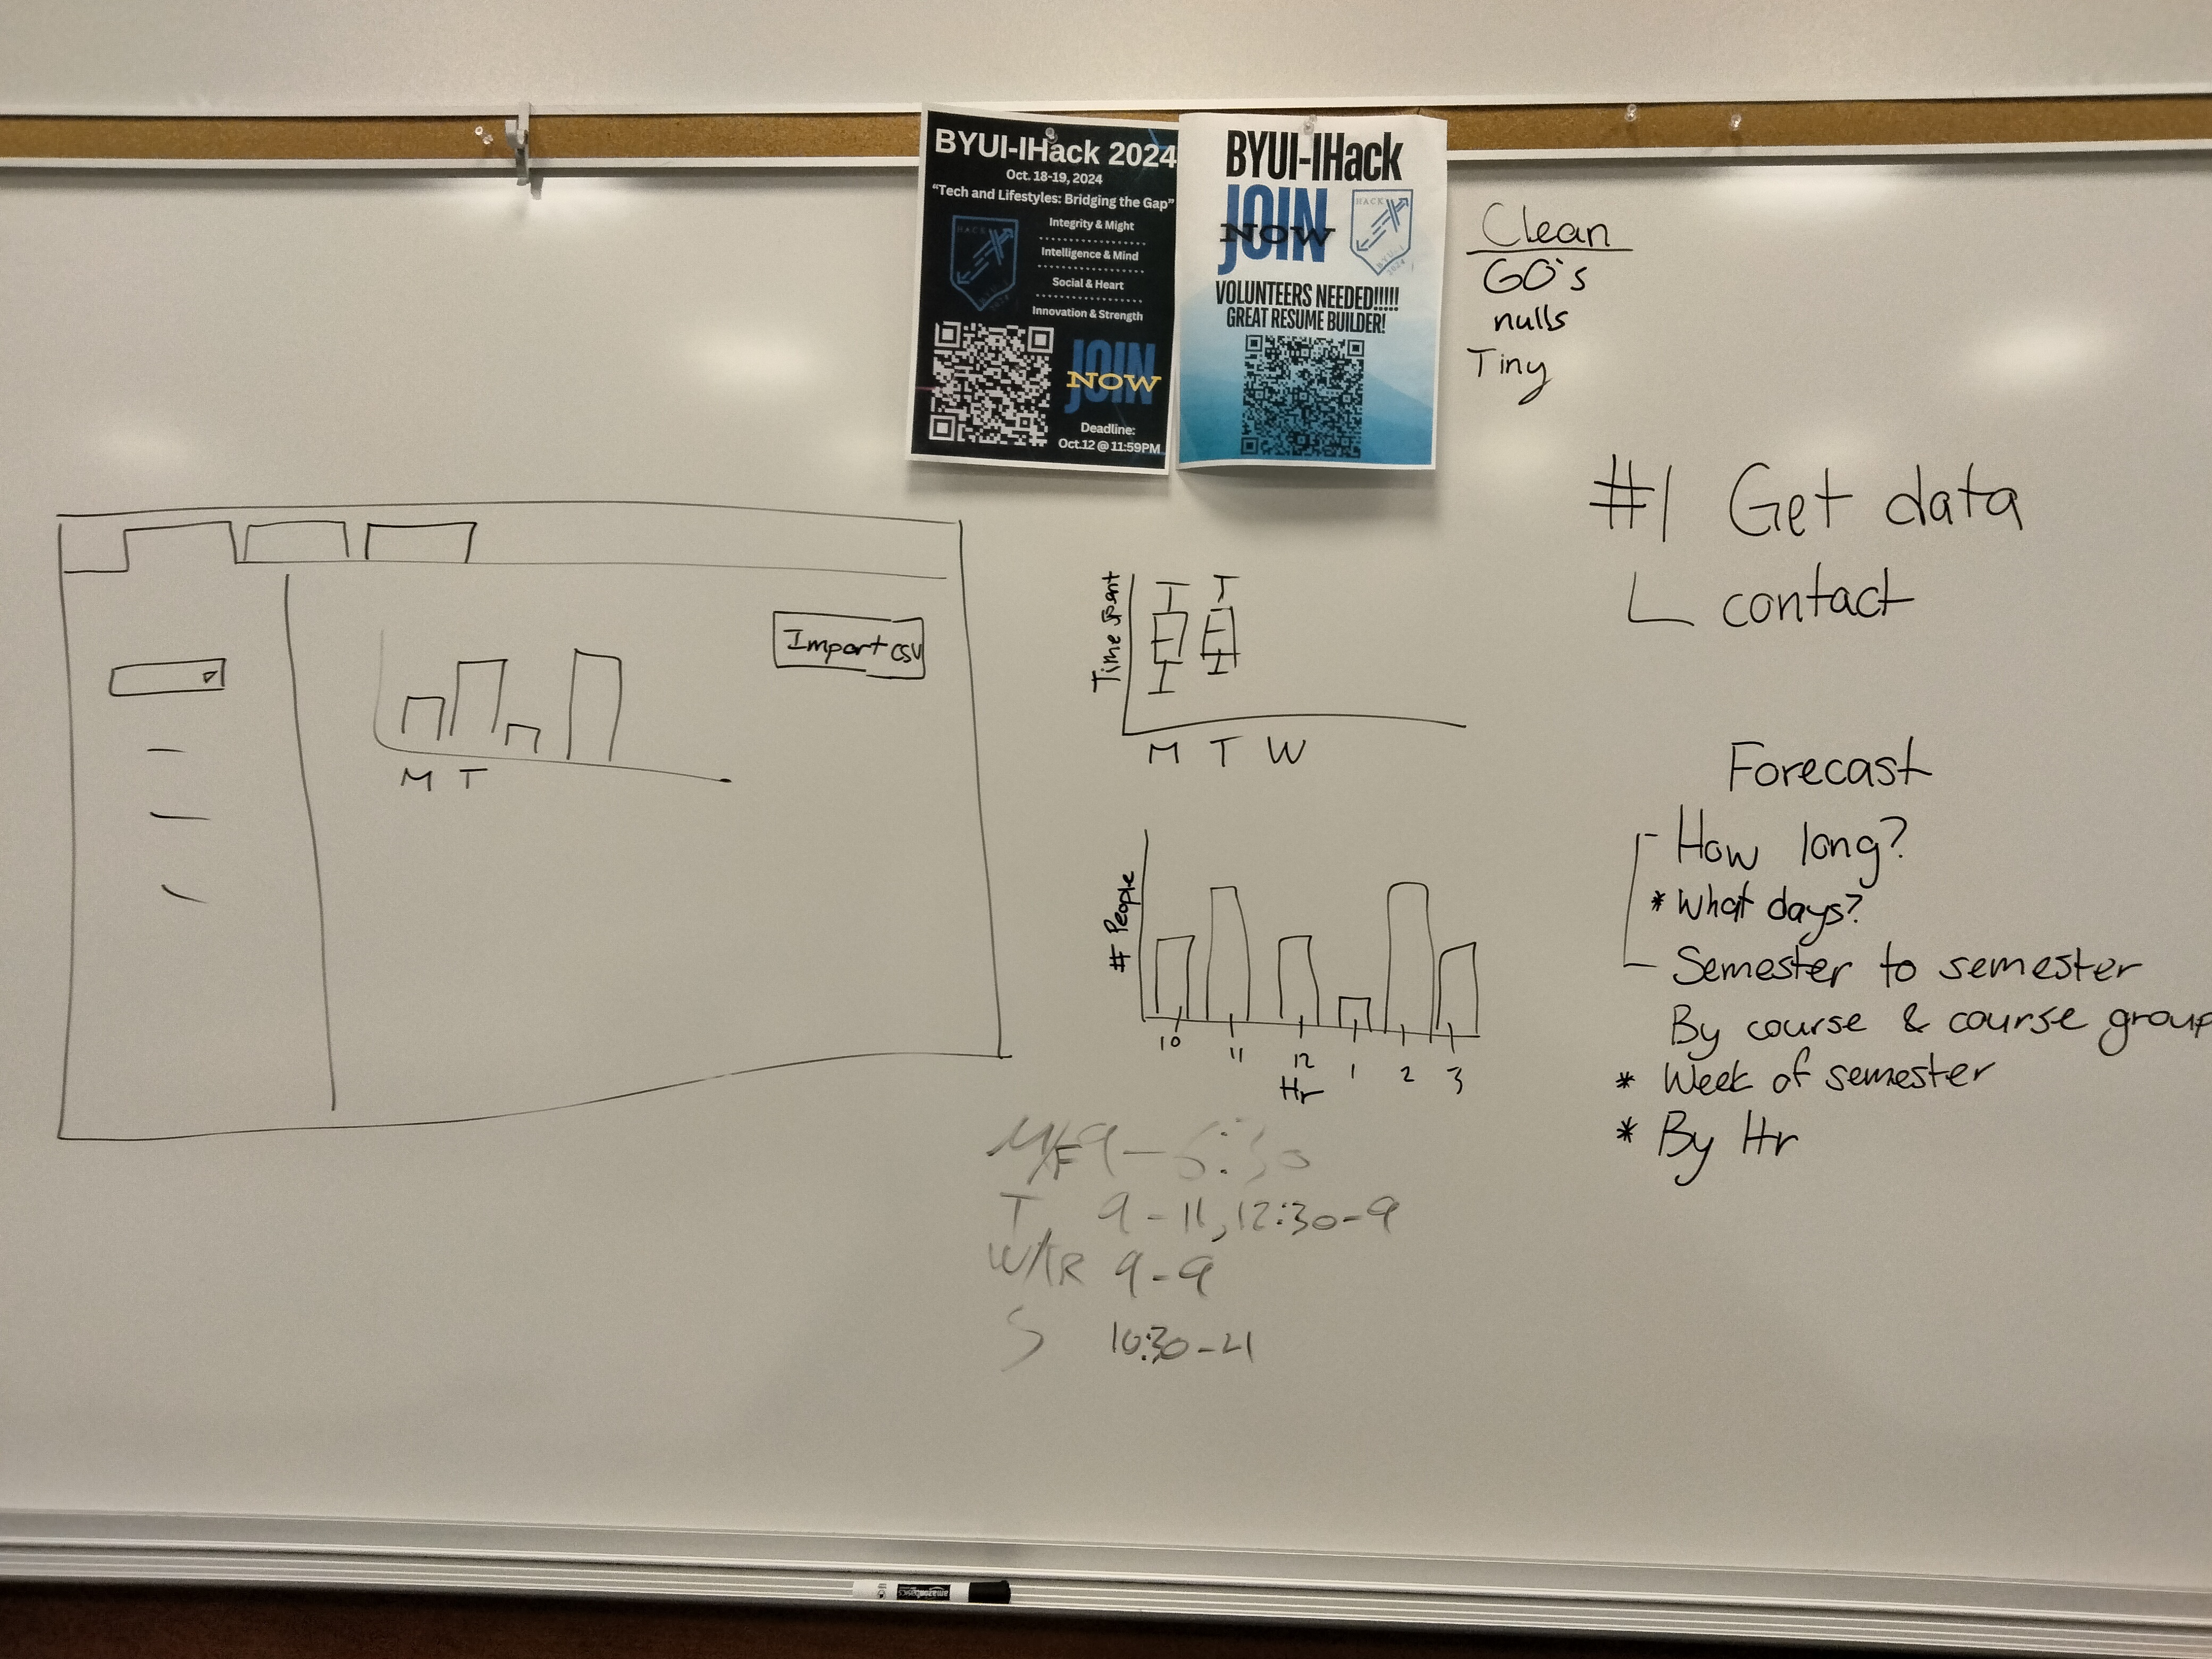 BYUI-IHack 2024
Oct. 18-19, 2024
“Tech and Lifestyles: Bridging the Gap”
HACK
Integrity & Might
Intelligence & Mind
Social & Heart
Innovation & Strength
JOIN
NOW
Deadline:
Oct.12 @ 11:59PM
BYUI-IHack
JOIN
NOW
HACK
BYU-I
2024
VOLUNTEERS NEEDED!!!!!
GREAT RESUME BUILDER!
Clean
60's
nulls
Tiny
#1 Get data
contact
Import csv
M T
Time spent
M T W
# People
10 11 12 1 2 3
Hr
Forecast
- How long?
* What days?
- Semester to semester
By course & course group
* Week of semester
* By Hr
M/F 9-6:30
T 9-11, 12:30-9
W/R 9-9
S 10:30-21
amazon